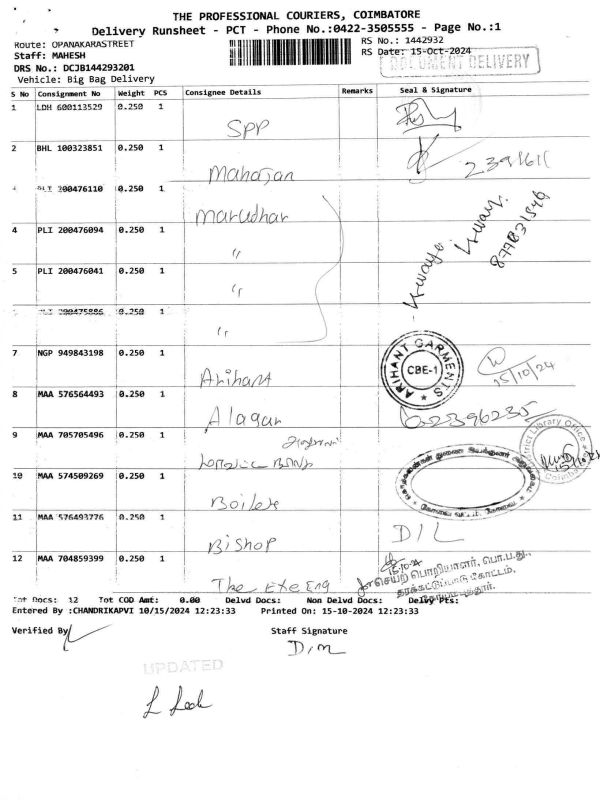 THE PROFESSIONAL COURIERS, COIMBATORE
Delivery Runsheet - PCT - Phone No.:0422-3505555 - Page No.:1
Route: OPANAKARASTREET RS No.: 1442932
Staff: MAHESH RS Date: 15-Oct-2024
DRS No.: DCJB144293201 DOCUMENT DELIVERY
Vehicle: Big Bag Delivery
S No Consignment No Weight PCS Consignee Details Remarks Seal & Signature
1 LDH 600113529 0.250 1
SPP
2 BHL 100323851 0.250 1
Mahajan
200476110 0.250 1
Marudhar
4 PLI 200476094 0.250 1
"
5 PLI 200476041 0.250 1
"
PLI 200475886 0.250 1
"
7 NGP 949843198 0.250 1
Arihant ARIHANT GARMENTS CBE-1 15/10/24
8 MAA 576564493 0.250 1
Alagar
9 MAA 705705496 0.250 1
District Library Office
Coimbatore
10 MAA 574509269 0.250 1
Boilers
11 MAA 576493776 0.250 1
Bishop D/L
12 MAA 704859399 0.250 1
The Exe Eng
செயற் பொறியாளர், பொ.ப.து.,
தரக்கட்டுப்பாடு கோட்டம்,
Tot Docs: 12 Tot COD Amt: 0.00 Delvd Docs: Non Delvd Docs: Delvy Pts:
Entered By :CHANDRIKAPVI 10/15/2024 12:23:33 Printed On: 15-10-2024 12:23:33
Verified By Staff Signature
UPDATED